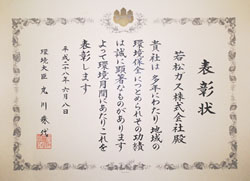 表彰状
若松ガス株式会社殿
貴社は多年にわたり地域の
環境保全につとめられその功績
は誠に顕著なものがあります
よって環境月間にあたりこれを
表彰します
平成二十八年六月八日
環境大臣 丸川珠代